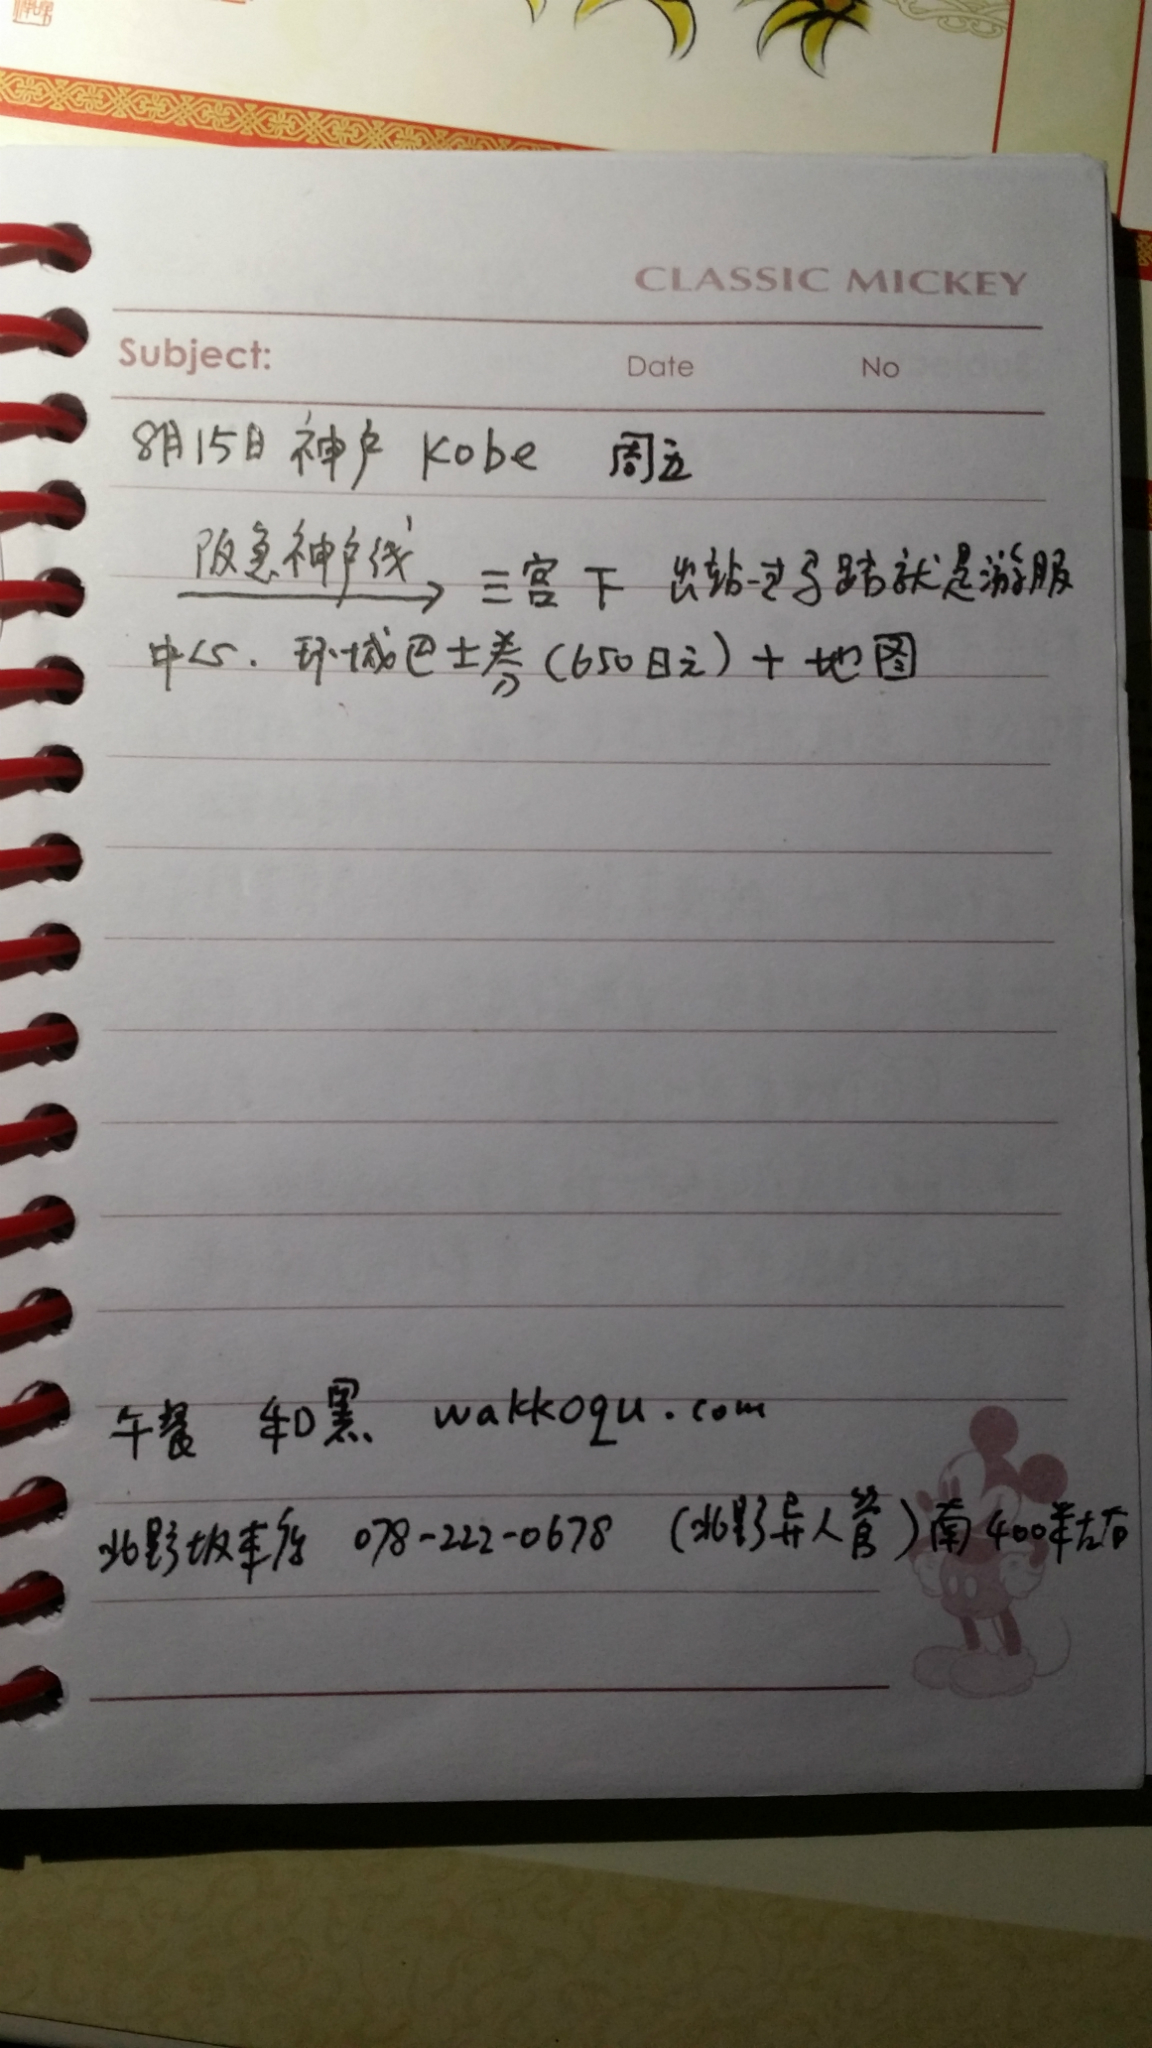 CLASSIC MICKEY
Subject: Date No
8月15日 神户 Kobe 周五
阪急神户线
三宫下 出站过马路就是游服
中心. 环城巴士券(650日元)+地图
午餐 和黑 wakkoqu.com
北野坂本店 078-222-0678 (北野异人管)南400米左右